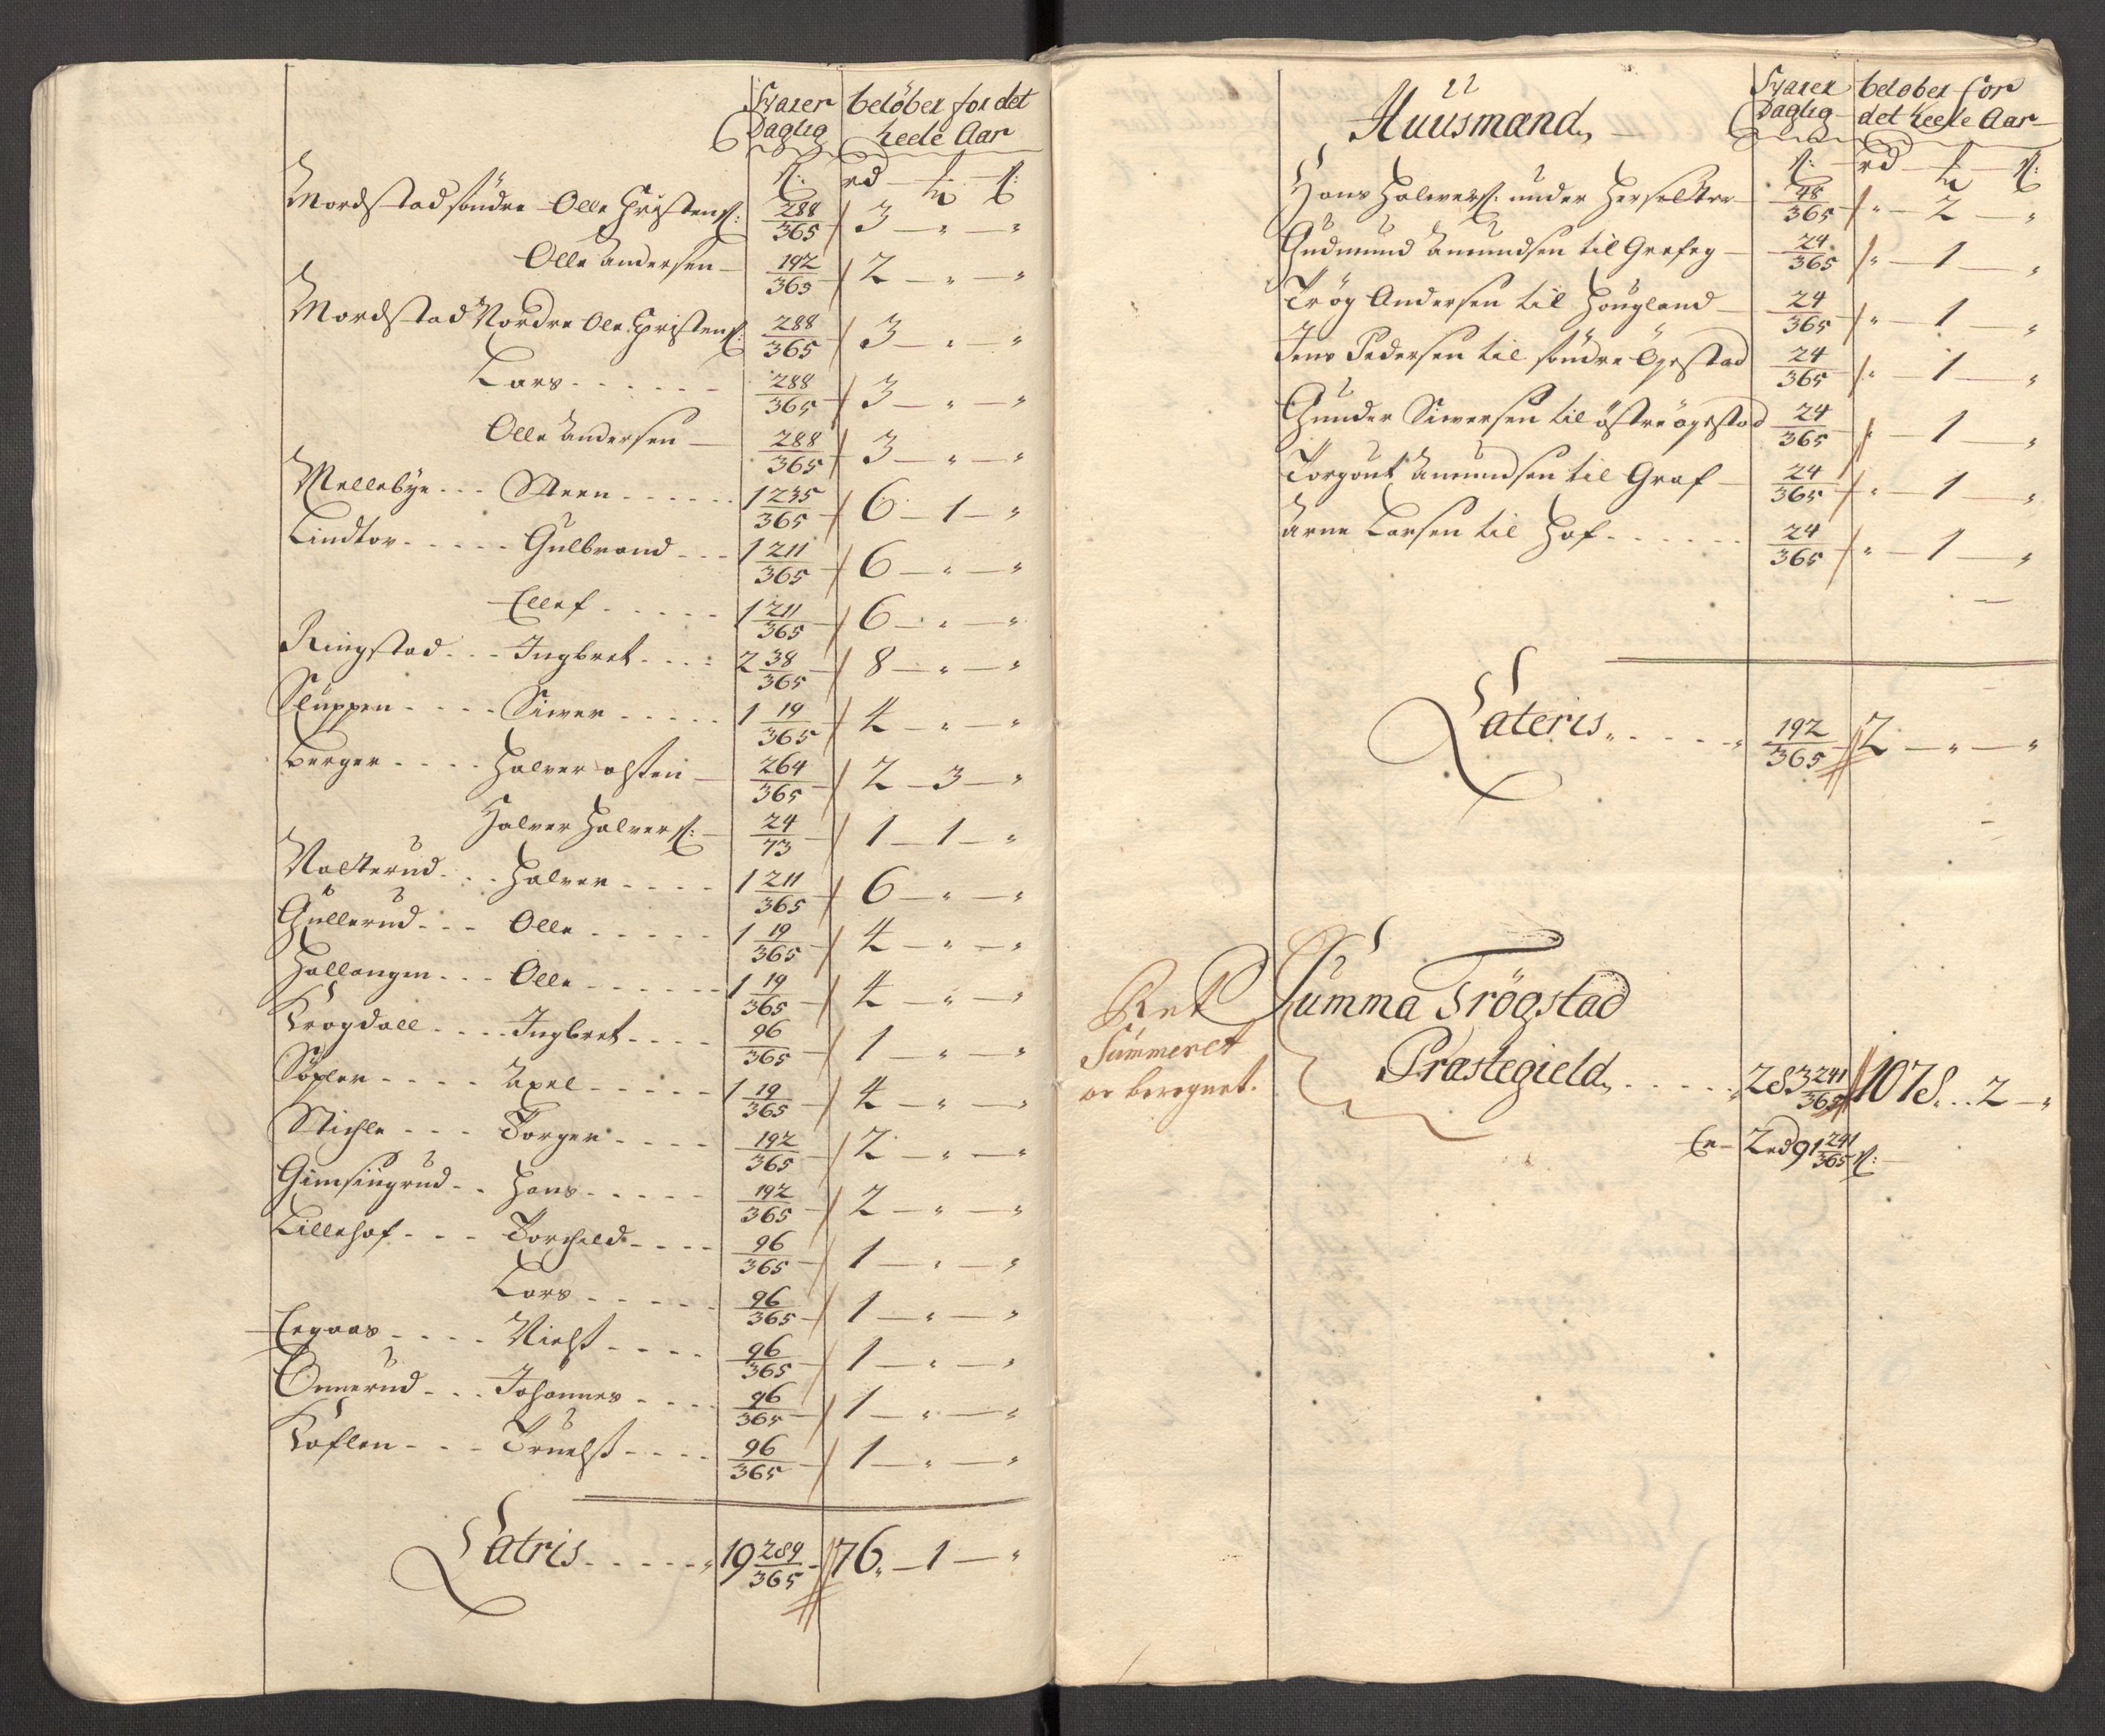 Svarer Daglig beløber for det heele Aar
ß: rd ƒ ß:
Mordstad søndre Olle Christenß: 288/365 3 — " — "
Olle Andersen — 192/365 2 — " — "
Mordstad Nordre Ole Christenß: 288/365 3 — " — "
Lars - - - - - - 288/365 3 — " — "
Olle Andersen — 288/365 3 — " — "
Mellebye - - - Steen - - - - - - 1 235/365 6 — 1 — "
Lindtor - - - - - Gulbrand - - - 1 211/365 6 — " — "
Ellef - - - - - - 1 211/365 6 — " — "
Ringstad - - - Ingbret - - - - 2 38/365 8 — " — "
Sluppen - - - - Siver - - - - - 1 19/365 4 — " — "
Berger - - - - Halver olsten — 264/365 2 — 3 — "
Halver Halverß: — 24/73 1 — 1 — "
Nalterud - - - Halver - - - - 1 211/365 6 — " — "
Gullerud - - - Olle - - - - - 1 19/365 4 — " — "
Hallangen - - - Olle - - - - - - 1 19/365 4 — " — "
Krogdall - - - - Ingbret - - - - 96/365 1 — " — "
Søpler - - - - Axel - - - - - 1 19/365 4 — " — "
Stichle - - - Torger - - - - 192/365 2 — " — "
Gimsingrud - - Hans - - - - - 192/365 2 — " — "
Lillehof - - - Torchild - - - - 96/365 1 — " — "
Lars - - - - - 96/365 1 — " — "
Eegaas - - - - Nielß - - - - 96/365 1 — " — "
Onnerud - - - Johannes - - - - 96/365 1 — " — "
Køflen - - - Truelß - - - - 96/365 1 — " — "
Latris - - - - - " 19 289/365 76 " — 1 — "
Huusmænd,
Svarer Daglig beløber for det heele Aar
ß: rd ƒ ß:
Hans Halverß: under — 48/365 " — 2 — "
Gudmund Amundsen til Grefeg — 24/365 " — 1 — "
Trög Andersen til Hougland — 24/365 " — 1 — "
Jens Pedersen til søndre Opstad 24/365 " — 1 — "
Gunder Siversen til østre opstad 24/365 " — 1 — "
Torgout Amundsen til Graf — 24/365 " — 1 — "
Arne Larsen til Hof - - - - - - 24/365 " — 1 — "
Lateris " - - - - " 192/365 2 — " — "
Ret
Summeret
oc beregnet.
Summa Trögstad
Præstegield, - - - - - 283 241/365 1078 - - 2 — "
Er — 2 rd 91 241/365 ß: —